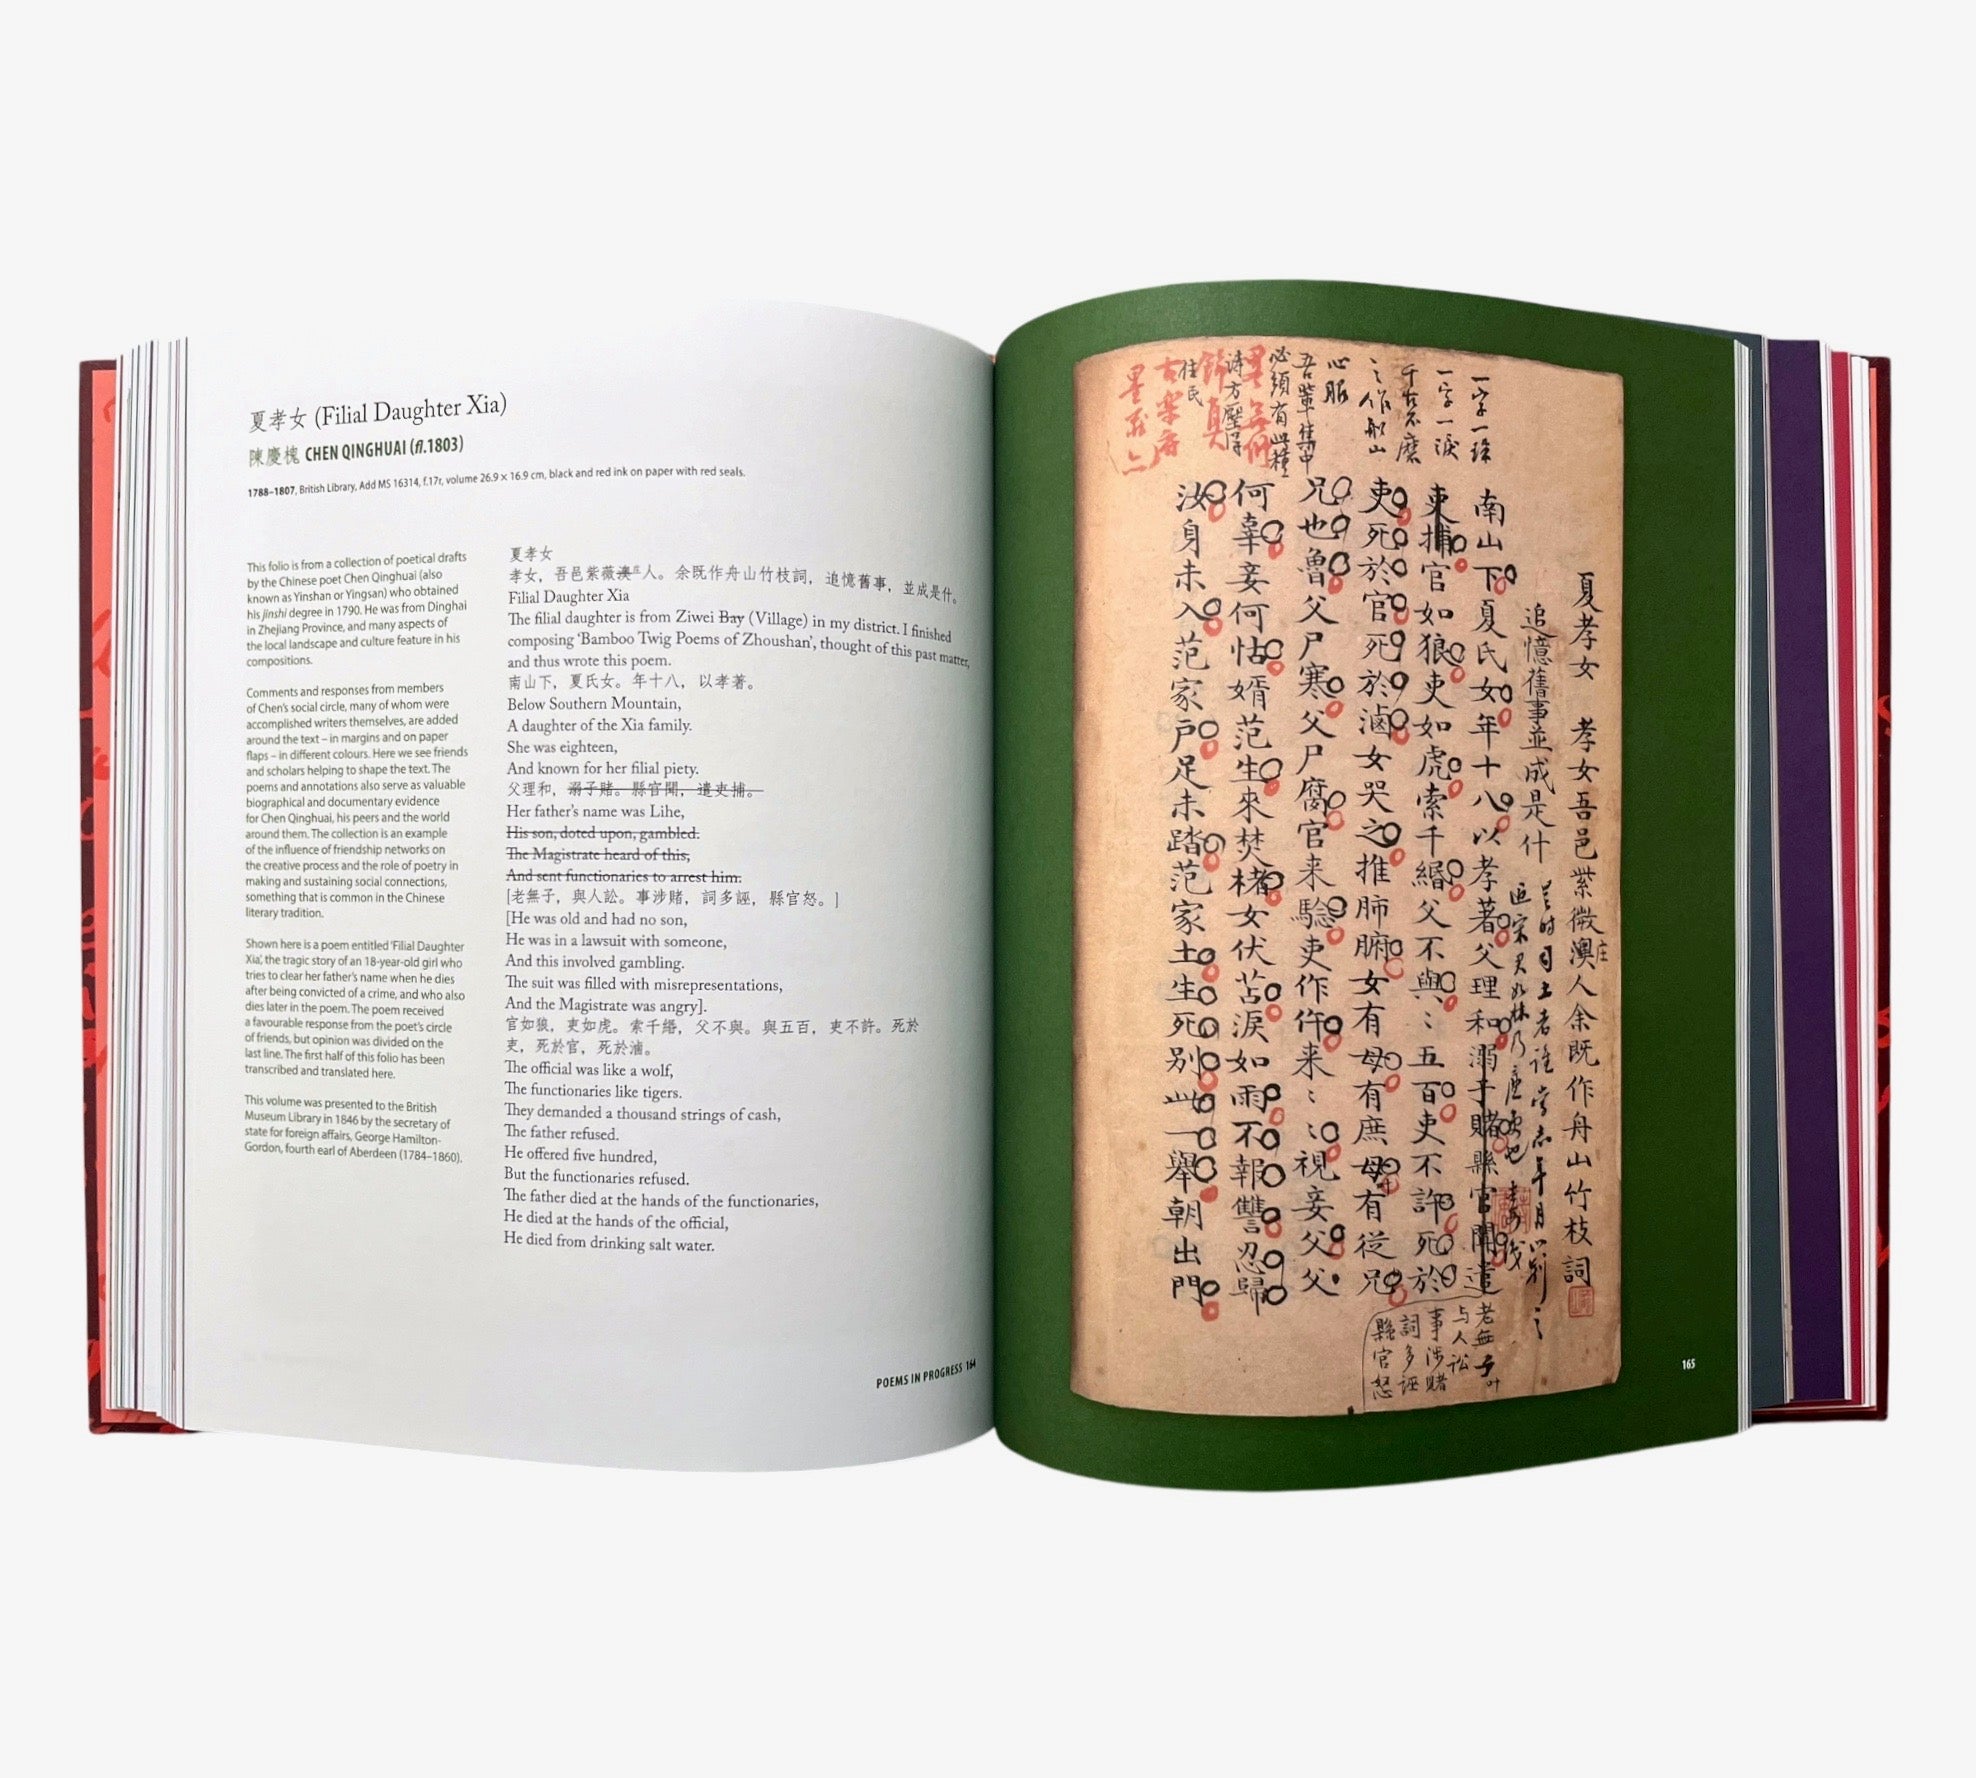 夏孝女 (Filial Daughter Xia)
陳慶槐 CHEN QINGHUAI (fl.1803)
1788–1807, British Library, Add MS 16314, f.17r, volume 26.9 × 16.9 cm, black and red ink on paper with red seals.
This folio is from a collection of poetical drafts
by the Chinese poet Chen Qinghuai (also
known as Yinshan or Yingsan) who obtained
his jinshi degree in 1790. He was from Dinghai
in Zhejiang Province, and many aspects of
the local landscape and culture feature in his
compositions.
Comments and responses from members
of Chen's social circle, many of whom were
accomplished writers themselves, are added
around the text – in margins and on paper
flaps – in different colours. Here we see friends
and scholars helping to shape the text. The
poems and annotations also serve as valuable
biographical and documentary evidence
for Chen Qinghuai, his peers and the world
around them. The collection is an example
of the influence of friendship networks on
the creative process and the role of poetry in
making and sustaining social connections,
something that is common in the Chinese
literary tradition.
Shown here is a poem entitled 'Filial Daughter
Xia', the tragic story of an 18-year-old girl who
tries to clear her father's name when he dies
after being convicted of a crime, and who also
dies later in the poem. The poem received
a favourable response from the poet's circle
of friends, but opinion was divided on the
last line. The first half of this folio has been
transcribed and translated here.
This volume was presented to the British
Museum Library in 1846 by the secretary of
state for foreign affairs, George Hamilton-
Gordon, fourth earl of Aberdeen (1784–1860).
夏孝女
孝女，吾邑紫薇澳庄人。余既作舟山竹枝詞，追憶舊事，並成是什。
Filial Daughter Xia
The filial daughter is from Ziwei Bay (Village) in my district. I finished
composing 'Bamboo Twig Poems of Zhoushan', thought of this past matter,
and thus wrote this poem.
南山下，夏氏女。年十八，以孝著。
Below Southern Mountain,
A daughter of the Xia family.
She was eighteen,
And known for her filial piety.
父理和，溺子賭。縣官聞，遣吏捕。
Her father's name was Lihe,
His son, doted upon, gambled.
The Magistrate heard of this,
And sent functionaries to arrest him.
[老無子，與人訟。事涉賭，詞多誣，縣官怒。]
[He was old and had no son,
He was in a lawsuit with someone,
And this involved gambling.
The suit was filled with misrepresentations,
And the Magistrate was angry].
官如狼，吏如虎。索千緡，父不與。與五百，吏不許。死於
吏，死於官，死於滷。
The official was like a wolf,
The functionaries like tigers.
They demanded a thousand strings of cash,
The father refused.
He offered five hundred,
But the functionaries refused.
The father died at the hands of the functionaries,
He died at the hands of the official,
He died from drinking salt water.
POEMS IN PROGRESS 164
夏孝女 孝女吾邑紫微澳庄人余既作舟山竹枝詞
追憶舊事並成是什
南山下夏氏女年十八以孝著父理和溺子賭縣官聞遣
吏捕官如狼吏如虎索千緡父不與〻五百吏不許死於
吏死於官死於滷女哭之推肺腑女有母有庶母有從兄
兄也魯父尸寒父尸腐官来驗吏作仵来〻〻視妾父父
何辜妾何怙婿范生來焚楮女伏苫淚如雨不報讐忍歸
汝身未入范家戶足未踏范家土生死别此一舉朝出門
一字一珠
一字一淚
千古不磨
之作舟山
心服
吾輩集中
必須有此種
老無子
与人訟
事涉賭
詞多誣
縣官怒
165